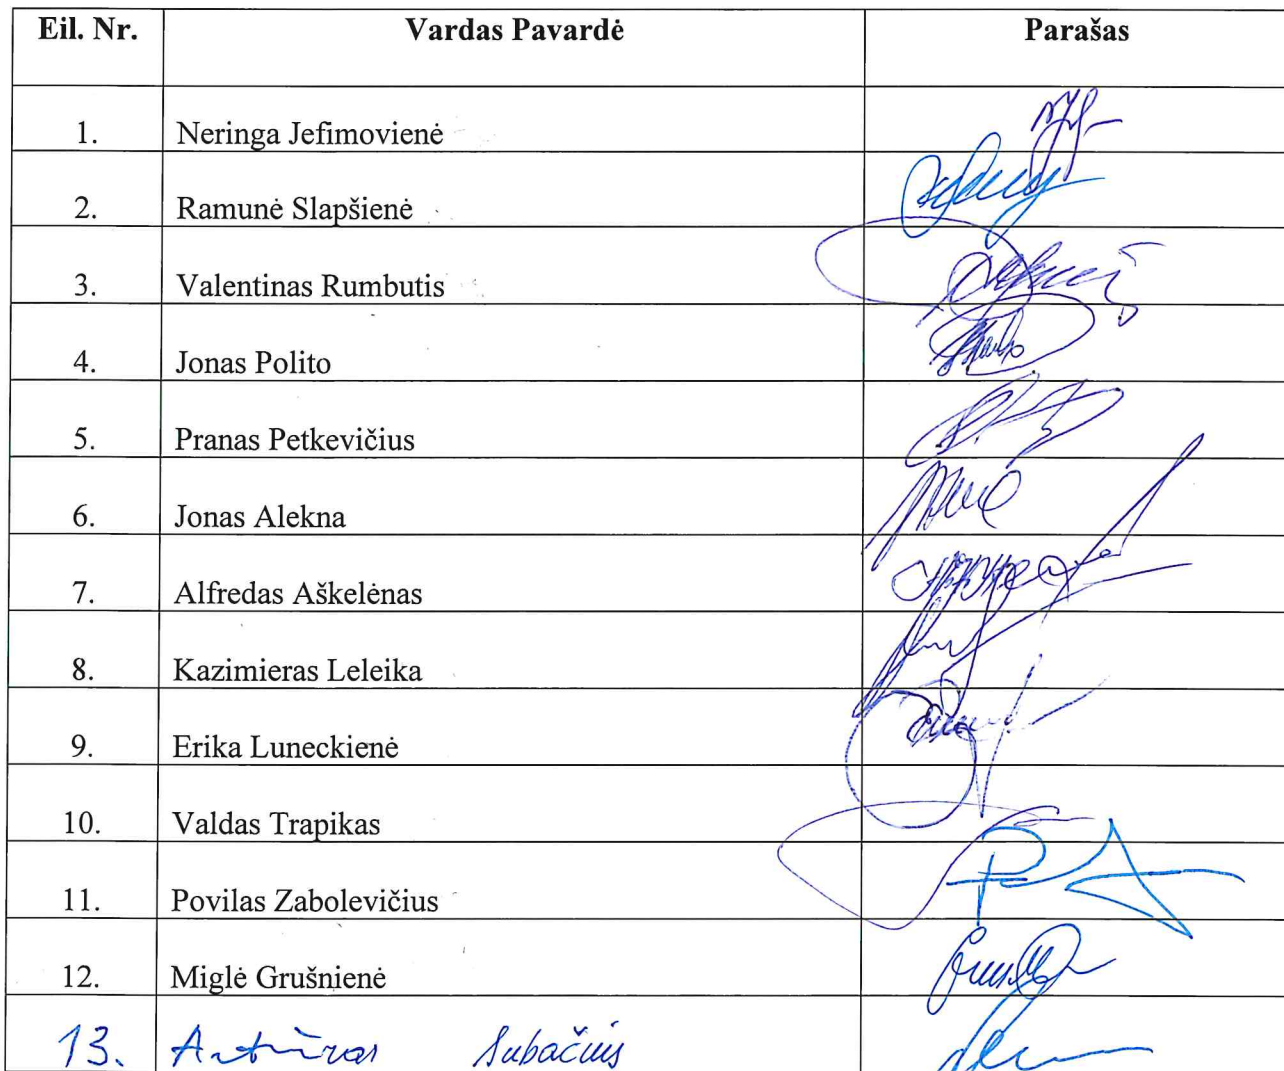 Eil. Nr. Vardas Pavardė Parašas
1. Neringa Jefimovienė
2. Ramunė Slapšienė
3. Valentinas Rumbutis
4. Jonas Polito
5. Pranas Petkevičius
6. Jonas Alekna
7. Alfredas Aškelėnas
8. Kazimieras Leleika
9. Erika Luneckienė
10. Valdas Trapikas
11. Povilas Zabolevičius
12. Miglė Grušnienė
13. Artūras Subačius